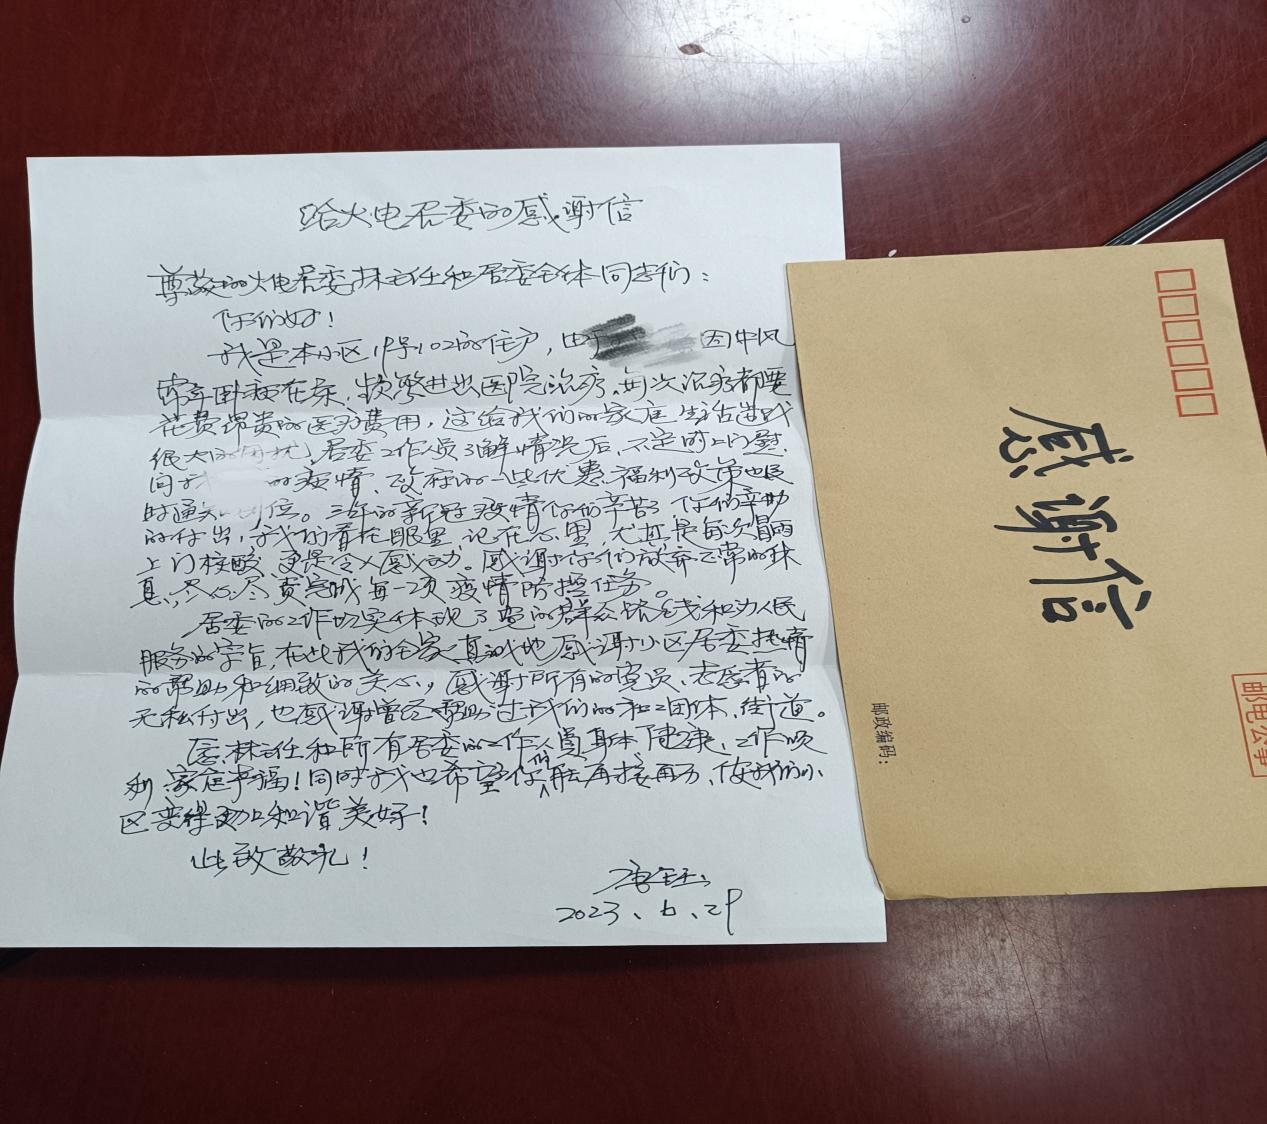 给火电居委的感谢信
尊敬的火电居委林主任和居委全体同志们：
你们好！
我是本小区19号102的住户，由于 因中风
常年卧病在床，频繁进出医院治疗。每次治疗都要
花费昂贵的医疗费用，这给我们的家庭生活造成
很大的困扰，居委工作人员了解情况后，不定时上门慰
问我 的病情、政府的一些优惠福利政策也及
时通知到位。三年的新冠疫情你们辛苦了，你们辛勤
的付出，我们看在眼里，记在心里，尤其是每次冒雨
上门核酸更是令人感动。感谢你们放弃正常的休
息，尽心尽责完成每一项疫情防控任务。
居委的工作切实体现了党的群众路线和为人民
服务的宗旨，在此我们全家真诚地感谢小区居委热情
的帮助和细致的关心，感谢所有的党员、志愿者的
无私付出，也感谢曾经帮助过我们的和工团体、街道。
愿林主任和所有居委的工作人员身体健康、工作顺
利、家庭幸福！同时我也希望你们能再接再力、使我们小
区变得更加和谐美好！
此致敬礼！
2023、6、29
感谢信
邮政编码：